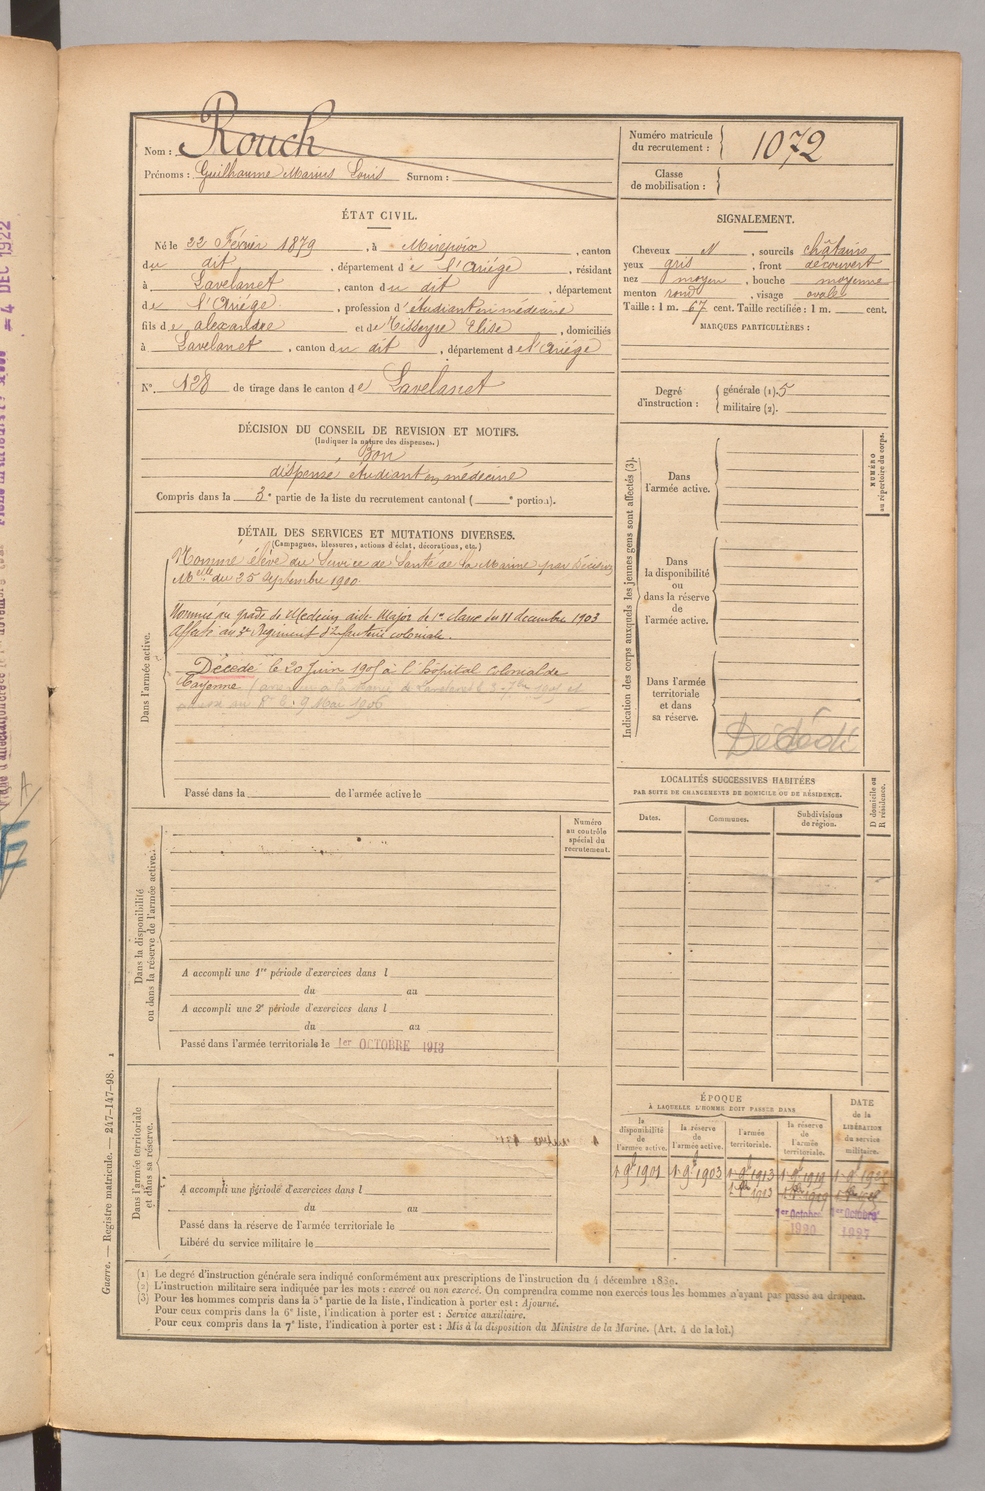 Nom : Rouch
Prénoms : Guilhaume Marius Louis Surnom :
Numéro matricule du recrutement : 1072
Classe de mobilisation :
ÉTAT CIVIL.
Né le 22 Février 1879, à Mirepoix, canton
du dit, département de l'Ariége, résidant
à Lavelanet, canton du dit, département
de l'Ariége, profession d'étudiant en médecine
fils de alexandre et de Tisseyre Elise, domiciliés
à Lavelanet, canton du dit, département de l'Ariége
N° 128 de tirage dans le canton de Lavelanet
SIGNALEMENT.
Cheveux N, sourcils châtains
yeux gris, front découvert
nez moyen, bouche moyenne
menton rond, visage ovale
Taille : 1 m. 67 cent. Taille rectifiée : 1 m. cent.
MARQUES PARTICULIÈRES :
Degré d'instruction : générale (1). 5
militaire (2).
DÉCISION DU CONSEIL DE REVISION ET MOTIFS.
(Indiquer la nature des dispenses.)
Bon
dispensé étudiant en médecine
Compris dans la 3e partie de la liste du recrutement cantonal ( e portion).
DÉTAIL DES SERVICES ET MUTATIONS DIVERSES.
(Campagnes, blessures, actions d'éclat, décorations, etc.)
Dans l'armée active.
Nommé élève du Service de Santé de la Marine par décision
Melle du 25 Septembre 1900.
Nommé au grade de Médecin aide-Major de 1re classe du 11 décembre 1903
Affecté au 3e Régiment d'Infanterie coloniale.
Décédé le 20 Juin 1905 à l'hôpital Colonial de
Cayenne
9 Mai 1906
Passé dans la de l'armée active le
Indication des corps auxquels les jeunes gens sont affectés (3).
NUMÉRO au répertoire du corps.
Dans l'armée active.
Dans la disponibilité ou dans la réserve de l'armée active.
Dans l'armée territoriale et dans sa réserve.
Décédé
LOCALITÉS SUCCESSIVES HABITÉES
PAR SUITE DE CHANGEMENTS DE DOMICILE OU DE RÉSIDENCE.
D domicile ou R résidence.
Dates. Communes. Subdivisions de région.
Dans la disponibilité ou dans la réserve de l'armée active.
Numéro au contrôle spécial du recrutement.
A accompli une 1re période d'exercices dans l
du au
A accompli une 2e période d'exercices dans l
du au
Passé dans l'armée territoriale le 1er OCTOBRE 1913
Dans l'armée territoriale et dans sa réserve.
A accompli une période d'exercices dans l
du au
Passé dans la réserve de l'armée territoriale le
Libéré du service militaire le
ÉPOQUE
À LAQUELLE L'HOMME DOIT PASSER DANS
DATE de la LIBÉRATION du service militaire.
la disponibilité de l'armée active.
la réserve de l'armée active.
l'armée territoriale.
la réserve de l'armée territoriale.
1903 1913 1919
1er Octobre 1920
1er Octobre 1927
Guerre. — Registre matricule. — 247-147-98. 1
(1) Le degré d'instruction générale sera indiqué conformément aux prescriptions de l'instruction du 4 décembre 1889.
(2) L'instruction militaire sera indiquée par les mots : exercé ou non exercé. On comprendra comme non exercés tous les hommes n'ayant pas passé au drapeau.
(3) Pour les hommes compris dans la 5e partie de la liste, l'indication à porter est : Ajourné.
Pour ceux compris dans la 6e liste, l'indication à porter est : Service auxiliaire.
Pour ceux compris dans la 7e liste, l'indication à porter est : Mis à la disposition du Ministre de la Marine. (Art. 4 de la loi.)
= 4 DEC 1922